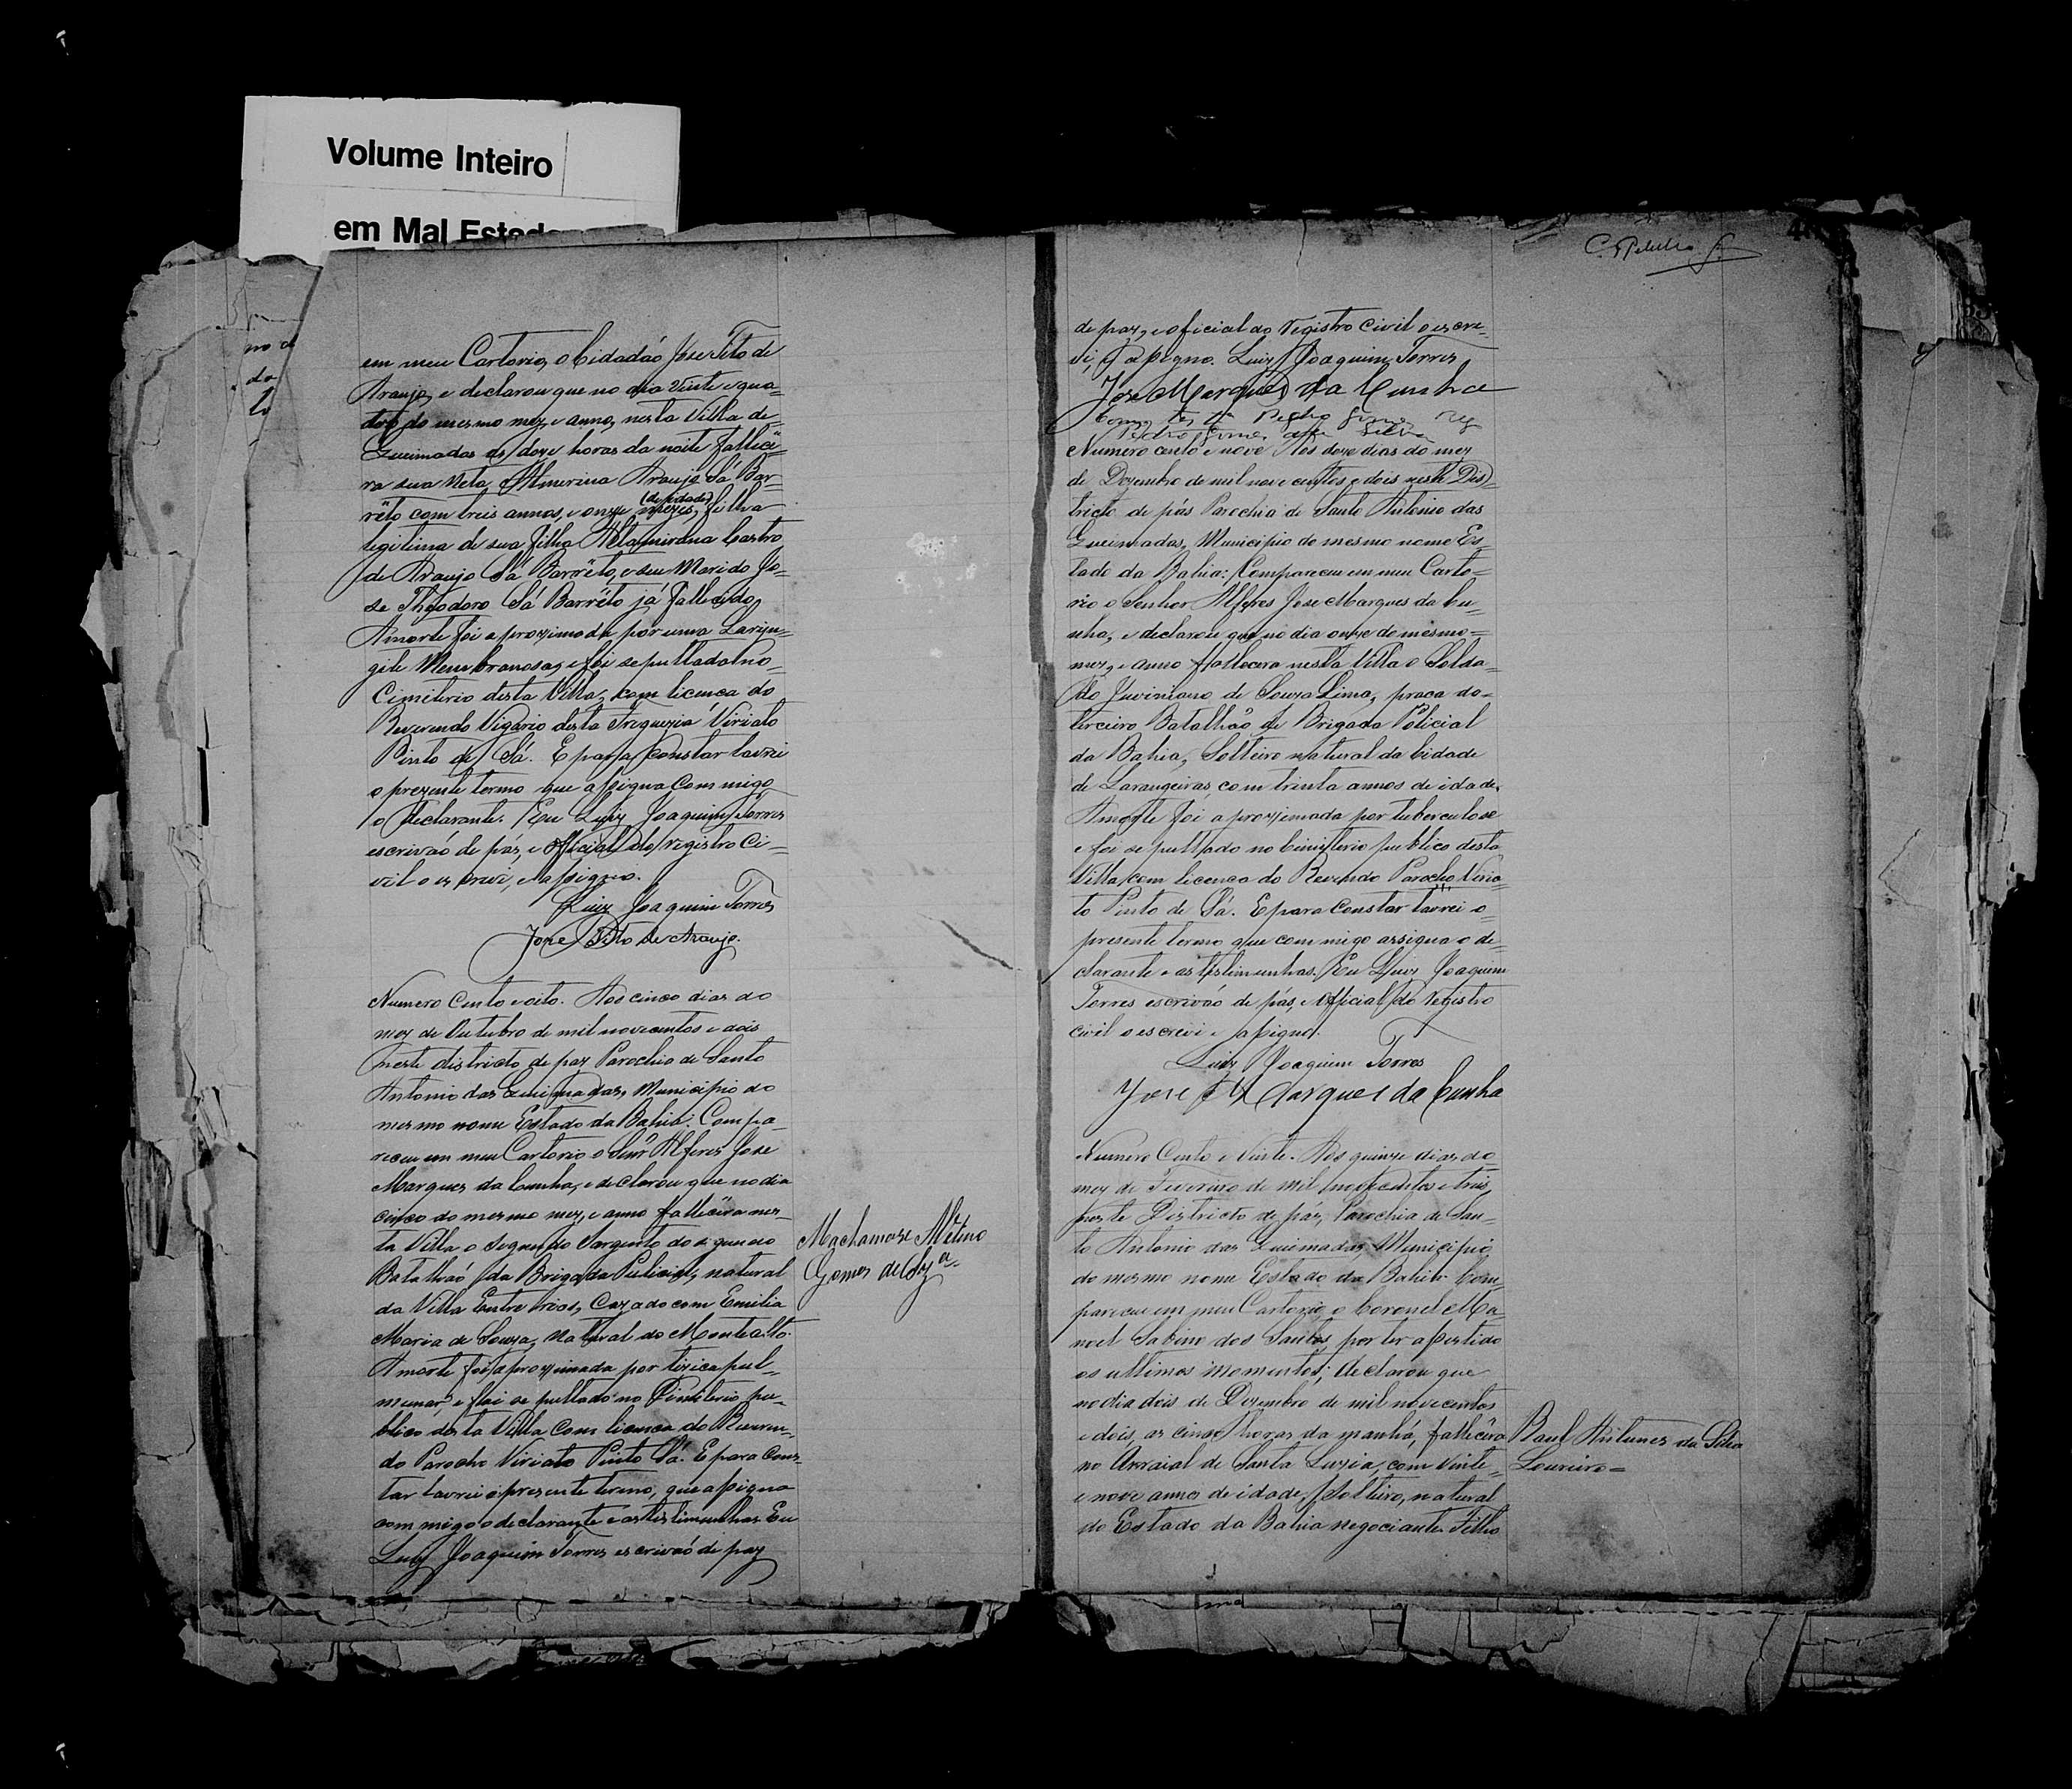 Volume Inteiro
em Mal Estado
em meu Cartorio, o Cidadaõ José Tito de
Araujo, e declarou que no dia vinte e qua-
tro do mesmo mez, e anno, nesta Villa de
Queimadas as doze horas da noite falleci-
ra sua Neta, Almerina Araujo Sá Bar-
reto com treis annos, e onze mezes, (de idade) filha
legitima de sua filha Altamirana Castro
de Araujo Sá Barrêto, e seu Marido Jo-
se Theodoro Sá Barrêto já fallecido,
A morte foi aproximada por uma Laryn-
gite Membranosa, e foi sepultada no
Cimiterio desta Villa, com licença do
Reverendo Vigario desta Freguezia Viriato
Pinto de Sá. E para constar lavrei
o prezente termo que assigna commigo
o declarante. Eu Luiz Joaquim Torres
escrivaõ de páz, e Official do registro Ci-
vil o escrevi, e assigno.
Luiz Joaquim Torres
José Tito de Araujo.
Numero Cento e oito. Aos cinco dias do
mez de Outubro de mil novecentos e dois
neste districto de paz Parochia de Santo
Antonio das Queimadas, Municipio do
mesmo nome Estado da Bahia: Compa-
receu em meu Cartorio o Senr Alferes José
Marques da Cunha, e declarou que no dia
cinco do mesmo mez, e anno fallecêra nes-
ta Villa o Segundo Sargento do segundo
Batalhaõ da Brigada Policial, natural
da Villa Entre rios, Cazado com Emilia
Maria de Souza, natural do Monte alto.
A morte foi aproximada por tizica pul-
munar, e foi sepultado no Cimiterio pu-
blico desta Villa com licença do Reveren-
do Parocho Viriato Pinto Sá. E para Cons-
tar lavrei o prezente termo, que assigna
commigo o declarante e as testimunhas. Eu
Luiz Joaquim Torres escrivaõ de paz
Gomes de Sza.
de paz, e oficial do Registro Civil o escre-
vi, e assigno. Luiz Joaquim Torres
José Marques da Cunha
Pedro Gomes da Silva
Numero cento e nove Aos doze dias do mez
de Dezembro de mil novecentos e dois neste Dis-
tricto de pás Parochia de Santo Antonio das
Queimadas, Municipio do mesmo nome Es-
tado da Bahia: Compareceu em meu Carto-
rio o Senhor Alferes José Marques da Cu-
nha, e declarou que no dia onze do mesmo
mez, e anno fallecera nesta Villa o Solda-
do Juviniano de Souza Lima, praça do
terceiro Batalhaõ de Brigada Policial
da Bahia, Solteiro natural da Cidade
de Larangeiras, com trinta annos de idade.
A morte foi aproximada por tuberculose
e foi sepultado no Cimiterio publico desta
Villa, com licença do Revendo Parocho Viria-
to Pinto de Sá. E para Constar lavrei o
presente termo que commigo assigna o de-
clarante e as testimunhas. Eu Luiz Joaquim
Torres escrivaõ de pás, e Official do Registro
civil o escrevi e assigno.
Luiz Joaquim Torres
José Marques da Cunha
Numero Cento e Vinte. Aos quinze dias do
mez de Fevereiro de mil novecentos e treis
neste Districto de páz, Parochia de San-
to Antonio das Queimadas, Municipio
do mesmo nome Estado da Bahia Com-
pareceu em meu Cartorio o Coronel Ma-
noel Sabino dos Santos por ter assistido
os ultimos momentos; declarou que
no dia dois de Dezembro de mil novecentos
e dois, as cinco horas da manhã, fallecêra
no Arraial de Santa Luzia, com vinte
e nove annos de idade, Solteiro, natural
do Estado da Bahia negociante. Filho
Raul Antunes da Silva
Loureiro